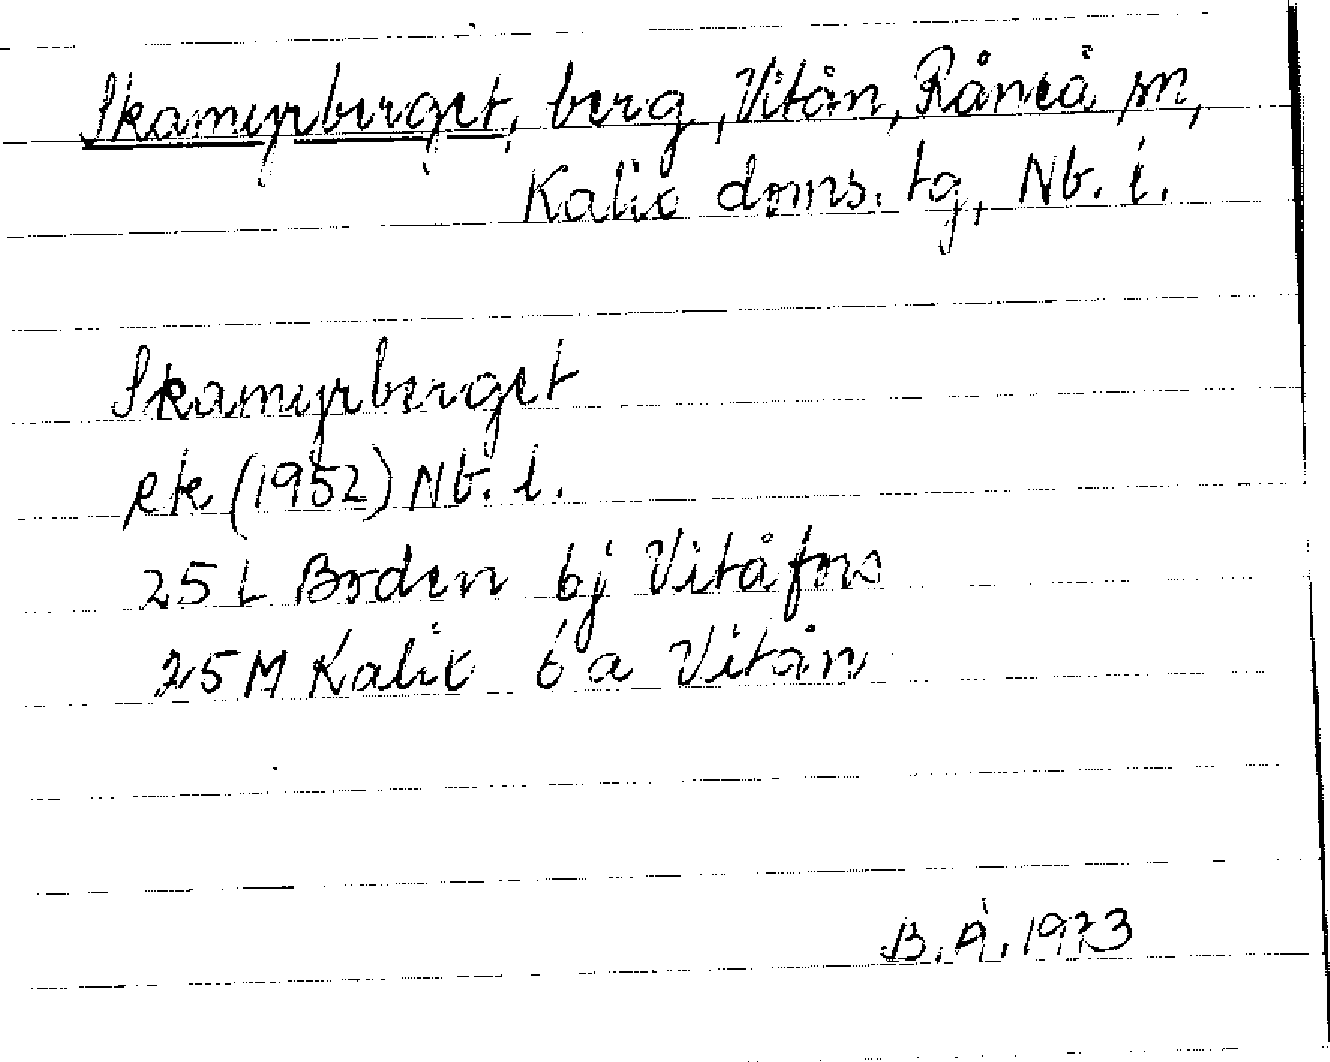 Skamyrberget, berg, Vitån, Råneå sn,
Kalix doms. tg, Nb. l.
Skamyrberget
Rk (1952) Nb. l.
25 L Boden 6j Vitåfors
25 M Kalix 6 a Vitån
B. Å. 1973